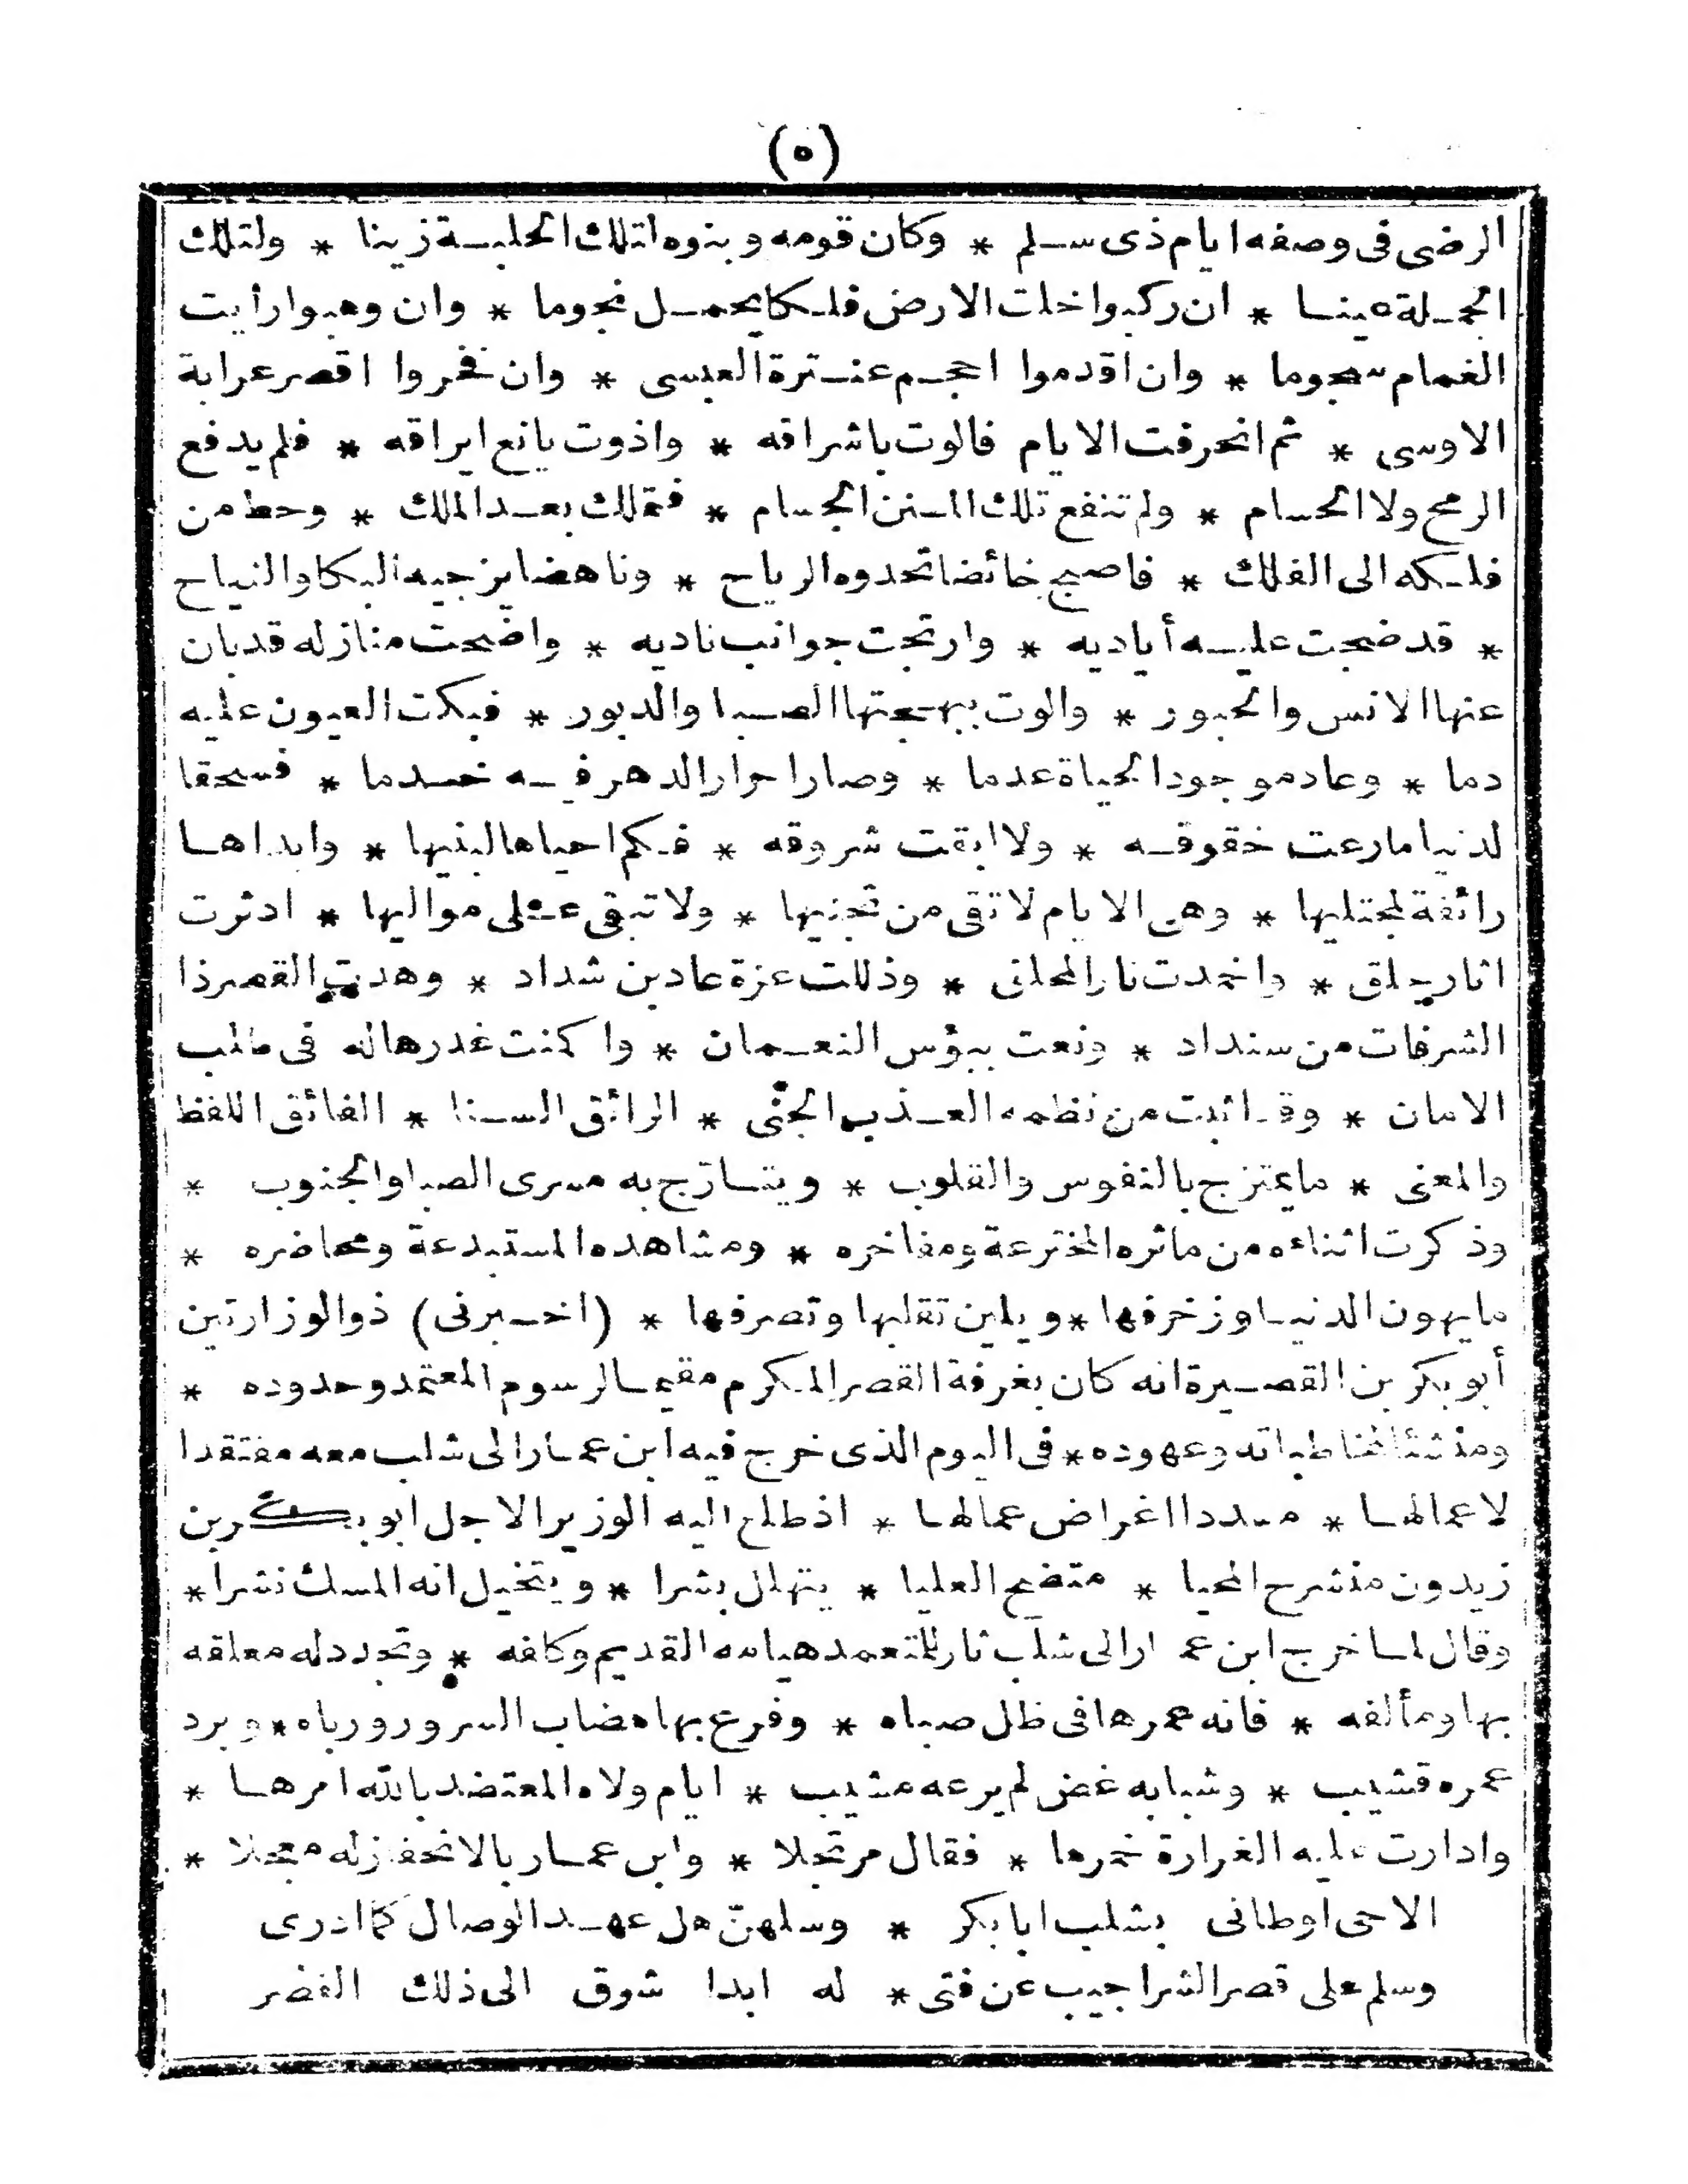 (٥)
الرضى فى وصفه ايام ذى سلم * وكان قومه وبنوه لتلك الحلبة زينا * ولتلك
الجملة عينا * ان ركبوا خلت الارض فلكا يحمل نجوما * وان وهبوا رأيت
الغمام سجوما * وان اقدموا احجم عنترة العبسى * وان فخروا اقصر عرابة
الاوسى * ثم انحرفت الايام فالوت باشراقه * واذوت يانع ايراقه * فلم يدفع
الرمح ولا الحسام * ولم تنفع تلك المنن الجسام * فتملك بعد الملك * وحط من
فلكه الى الفلك * فاصبح خائضا تحدوه الرياح * وناهضا يزجيه البكا والنياح
* قد ضجت عليه أياديه * وارتجت جوانب ناديه * واضحت منازله قد بان
عنها الانس والحبور * والوت ببهجتها الصبا والدبور * فبكت العيون عليه
دما * وعاد موجود الحياة عدما * وصار احرار الدهر فيه خدما * فسحقا
لدنيا ما رعت حقوقه * ولا ابقت شروقه * فكم احياها لبنيها * وابداها
رائقة لمجتليها * وهى الايام لا تقى من تجنيها * ولا تبقى على مواليها * ادثرت
اثار جلق * واخمدت نار المحلق * وذللت عزة عاد بن شداد * وهدت القصر ذا
الشرفات من سنداد * ونعت ببؤس النعمان * واكمنت غدرها له فى طلب
الامان * وقد اثبت من نظمه العذب الجنى * الرائق السنا * الفائق اللفظ
والمعنى * ما يمتزج بالنفوس والقلوب * ويتأرج به مسرى الصبا والجنوب *
وذكرت اثناءه من ماثره المخترعة ومفاخره * ومشاهده المستبدعة ومحاضره *
ما يهون الدنيا وزخرفها * ويلين تقلبها وتصرفها * (اخبرنى) ذو الوزارتين
أبو بكر بن القصيرة انه كان بغرفة القصر المكرم مقيما لرسوم المعتمد وحدوده *
ومنشئا لمخاطباته وعهوده * فى اليوم الذى خرج فيه ابن عمار الى شلب معه مفتقدا
لاعمالها * مسددا اغراض عمالها * اذ طلع اليه الوزير الاجل ابو بكر بن
زيدون منشرح المحيا * متضح العليا * يتهلل بشرا * ويتخيل انه المسك نشرا *
وقال لما خرج ابن عمار الى شلب ثار للمتعمد هيامه القديم وكلفه * وتجدد له معلقه
بها ومألفه * فانه عمرها فى ظل صباه * وفرع بها هضاب السرور ورباه * وبرد
عمره قشيب * وشبابه غض لم يرعه مشيب * ايام ولاه المعتضد بالله امرها *
وادارت عليه الغرارة خمرها * فقال مرتجلا * وابن عمار بالانحفاز له معجلا *
الا حى اوطانى بشلب ابا بكر * وسلهن هل عهد الوصال كما ادرى
وسلم على قصر الشراجيب عن فتى * له ابدا شوق الى ذلك القصر